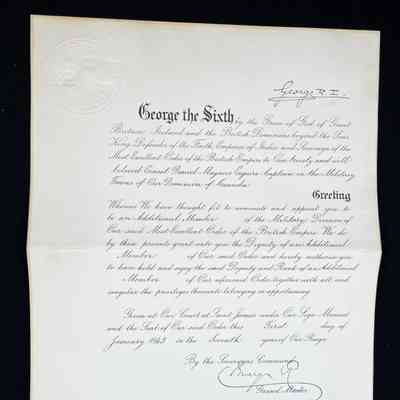 George R.I.
George the Sixth by the Grace of God of Great
Britain, Ireland and the British Dominions beyond the Seas
King, Defender of the Faith, Emperor of India and Sovereign of the
Most Excellent Order of the British Empire to Our trusty and well
beloved Ernest Magnus Esquire Captain in the Military
Forces of Our Dominion of Canada
Greeting
Whereas We have thought fit to nominate and appoint you to
be an Additional Member of the Military Division of
Our said Most Excellent Order of the British Empire We do
by these presents grant unto you the Dignity of an Additional
Member of Our said Order and hereby authorise you
to have hold and enjoy the said Dignity and Rank of an Additional
Member of Our aforesaid Order together with all and
singular the privileges thereunto belonging or appertaining
Given at Our Court at Saint James's under Our Sign Manual
and the Seal of Our said Order this First day of
January 1943 in the Seventh year of Our Reign
By the Sovereign's Command
Grand Master